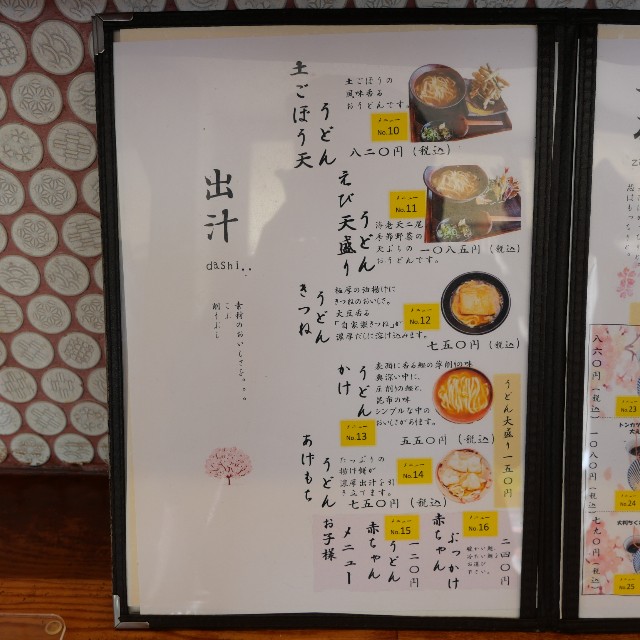 出汁
dashi..
素材のおいしさを。。。
こぶ
削りぶし
土ごぼう天
うどん
土ごぼうの
風味香る
おうどんです。
メニュー
No.10
八二〇円(税込)
えび天盛り
うどん
メニュー
No.11
海老天二尾
季節野菜の
天ぷらの
おうどんです。
一〇八五円(税込)
きつね
うどん
極厚の油揚げに
きつねのおいしさ。
大豆香る
「自家製きつね」が
濃厚だしに溶け込みます。
メニュー
No.12
七五〇円(税込)
かけ
うどん
表面に香る鰹の厚削の味
奥深い中に、
圧削りの鰹と、
昆布の味
シンプルな中の
おいしさがあります。
メニュー
No.13
五五〇円(税込)
うどん大盛り一五〇円
あげもち
うどん
たっぷりの
揚げ餅が
濃厚出汁を引
き立てます。
メニュー
No.14
七五〇円(税込)
お子様
メニュー
赤ちゃん
うどん
メニュー
No.15
一二〇円
赤ちゃん
ぶっかけ
メニュー
No.16
二四〇円
八六〇円(税込)
No.23
トンカツ
一〇八〇円(税込)
No.24
七九〇円(税込)
No.25